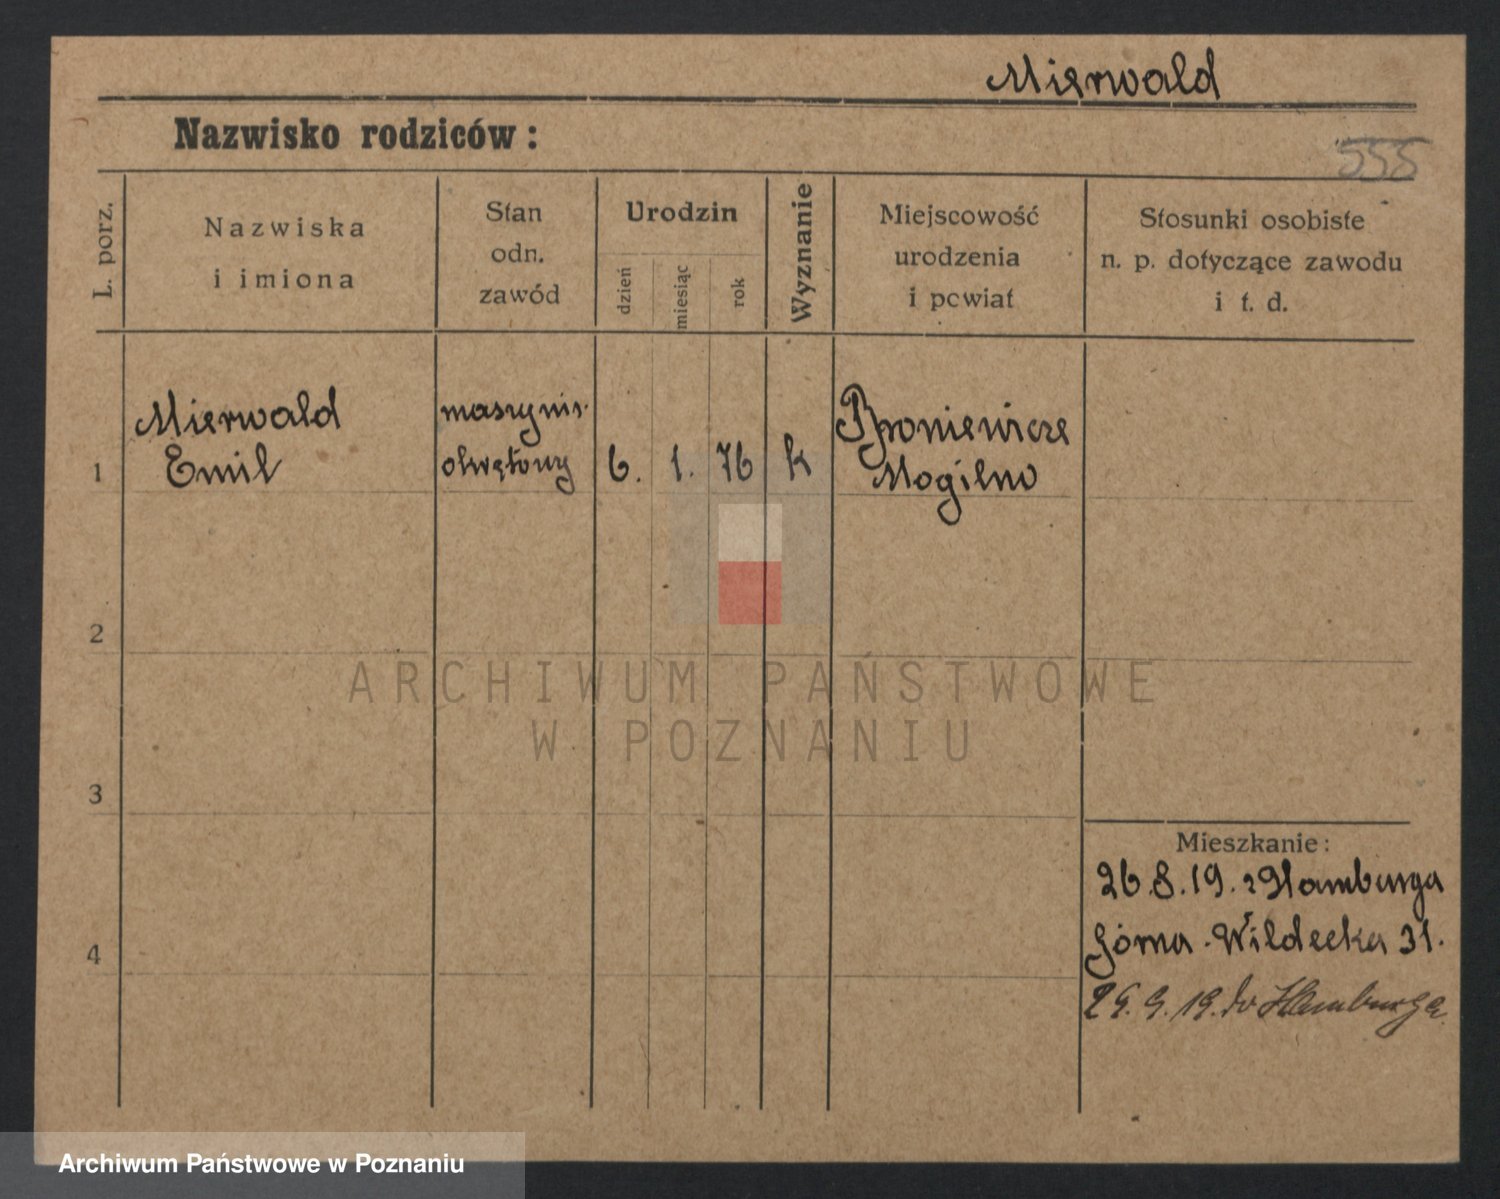 Mierwald
Nazwisko rodziców:
555
L. porz.
Nazwiska
i imiona
Stan
odn.
zawód
Urodzin
dzień
miesiąc
rok
Wyznanie
Miejscowość
urodzenia
i pcwiat
Stosunki osobiste
n. p. dotyczące zawodu
i t. d.
1
Mierwald
Emil
maszynis.
okrętowy
6. 1. 76
k
Broniewicze
Mogilno
2
3
4
Mieszkanie:
26.8.19. z Hamburga
Górna-Wildecka 31.
29.9.19. do Hamburga
ARCHIWUM PAŃSTWOWE
W POZNANIU
Archiwum Państwowe w Poznaniu